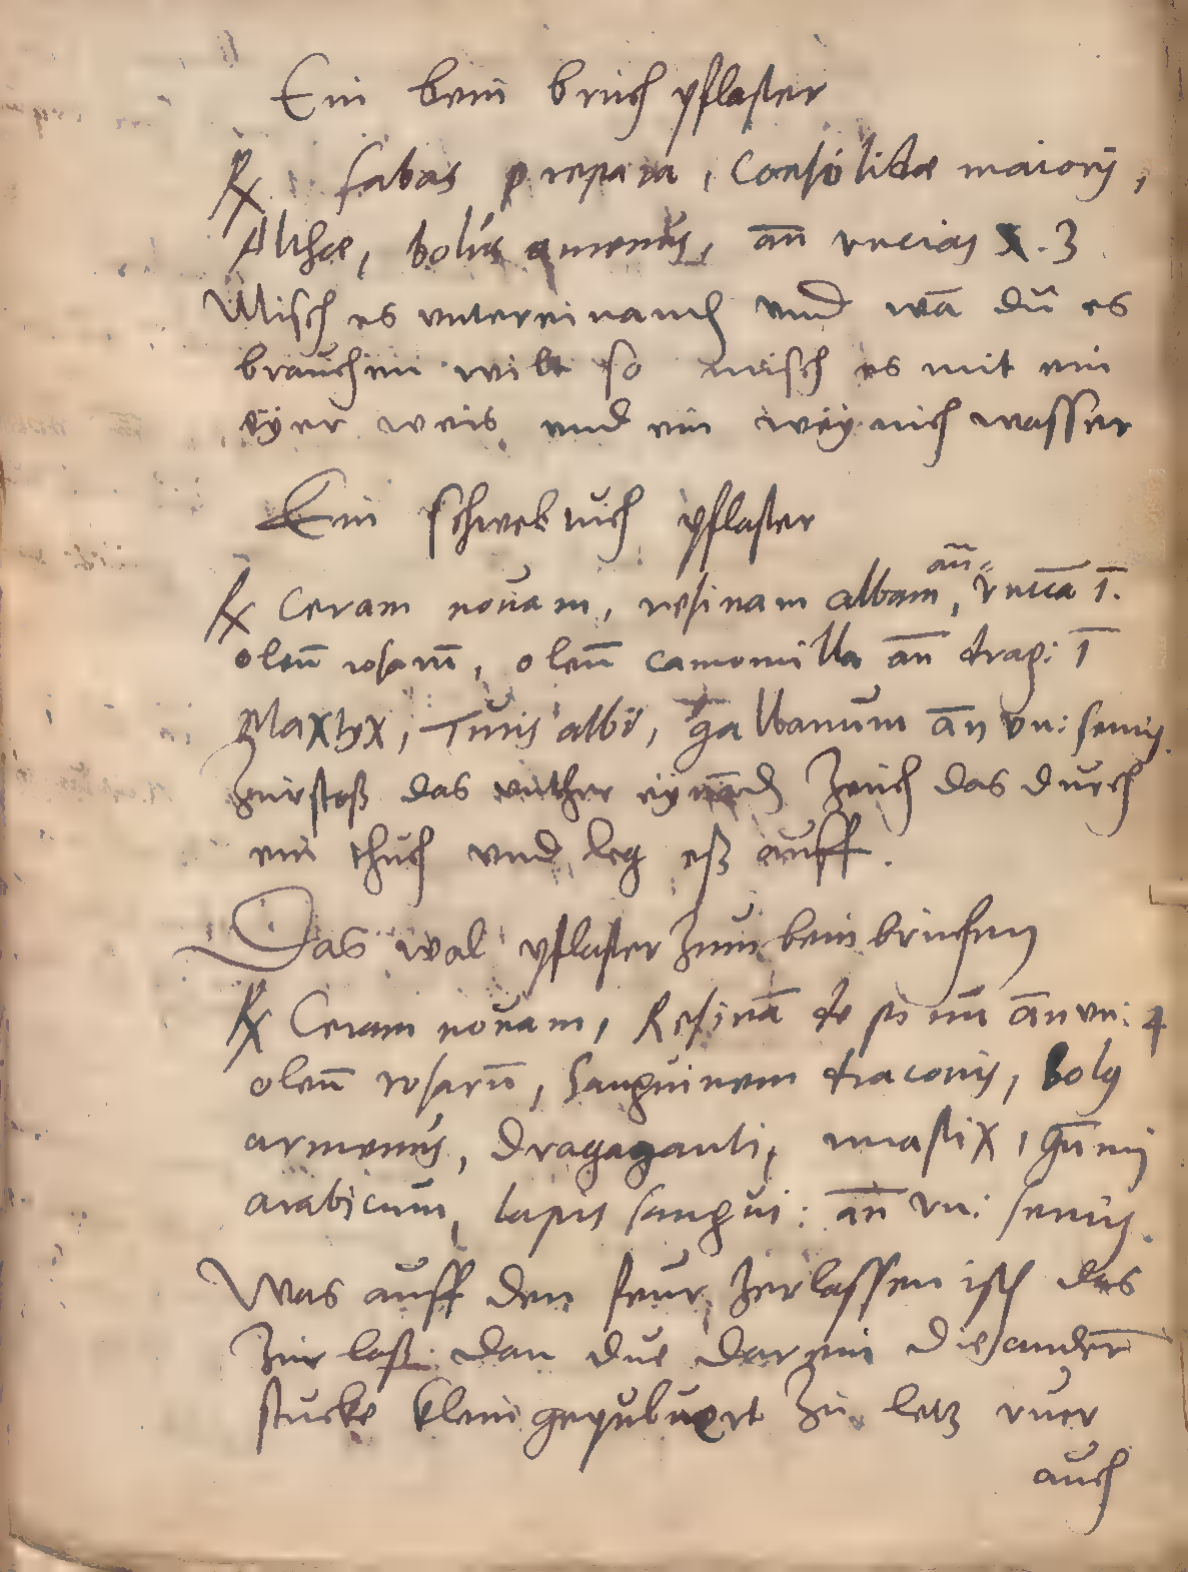 Ein bein bruch pflaster
℞ fabas prepara, Consolidae maioris,
Altheae, bolus armenus, an̄ vncias x. 3
Misch es vntereinand und wā du es
brauchen wilt so misch es mit ein
eyer weis und ein weynich wasser
Ein schwebtuch pflaster
an̄
℞ Ceram novam, resinam albam, vncia 1.
oleū rosarū, oleū camomilla an̄ drag: 1
Maxtyx, Turis albi, galbanum an̄ vn: semis.
Zurstoß das vnther eynand Zeuch das durch
ein thuch vnd leg eß auff.
Das wal pflaster Zum bein bruchen
℞ Ceram novam, Resinā de pinū an̄ vn: 4
oleū rosarū, Sanguinem draconis, bolus
armenus, Dragaganti, mastix, gūmi
arabicum, lapis sangui: an̄ vn: semis.
Was auff den feur Zerlassen ist das
Zur laß dan due darein die andern
stucke klein gepuluert Zu letz ruer
auch